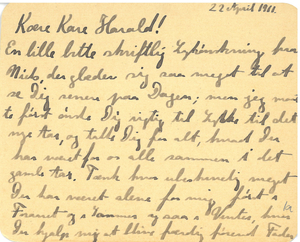 22 April 1911.
Kære Kære Harald!
En lille bitte skriftlig Lykønskning fra
Niels, der glæder sig saa meget til at
se Dig senere paa Dagen; men jeg maa
to først ønske Dig rigtig til Lykke til det
nye Aar, og takke Dig for alt, hvad Du
har været for os alle sammen i det
gamle Aar. Tænk hvor ubeskrivelig meget
Du har været alene for mig, først i
og saa i Vinter, hvor
Du hjalp mig at blive færdig førend Fader